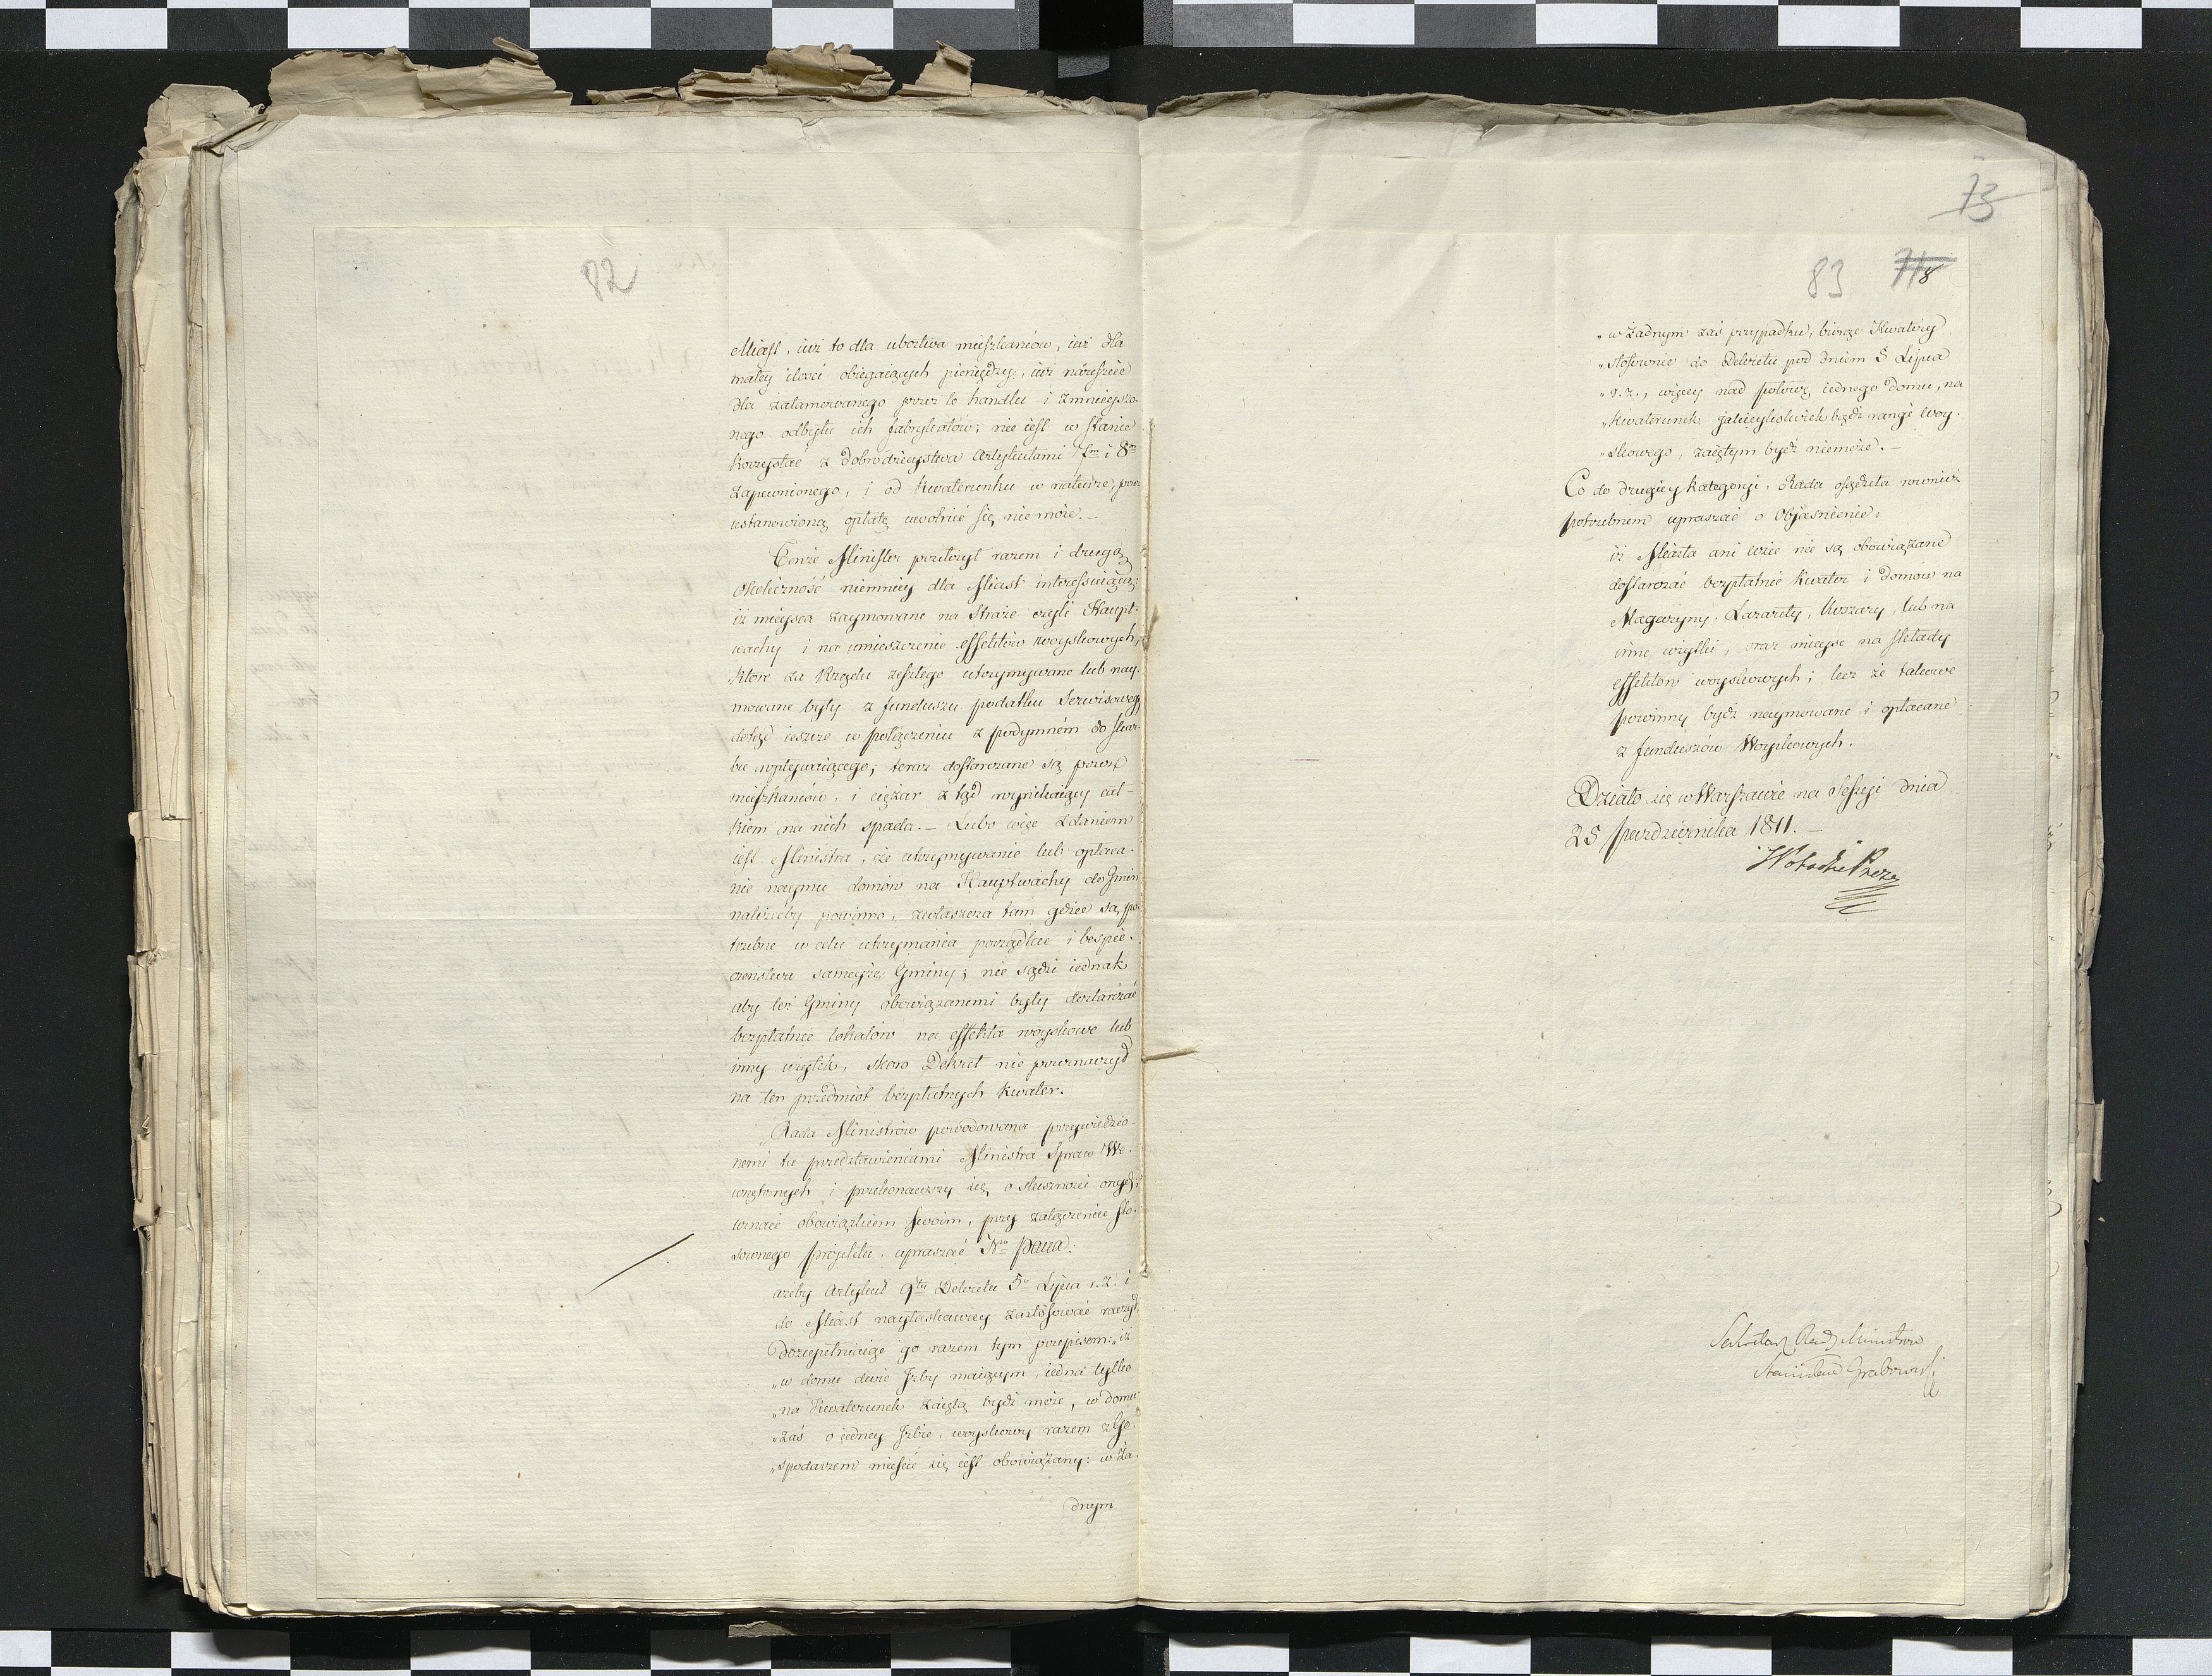 82
Miast, iuż to dla ubóztwa mieszkańców, iuż dla
małey ilości obiegaiących pieniędzy, iuż nareszcie
dla zatamowanego przez to handlu i zmnieyszo-
nego odbytu ich fabrykatów; nie iest w stanie
korzystać z dobrodzieystwa Artykułami 7m i 8m
zapewnionego, i od kwaterunku w naturze, przez
ustanowioną opłatę uwolnić się nie może. –
Tenże Minister przełożył razem i drugą
okoliczność niemniey dla Miast interessuiącą;
iż mieysca zaymowane na Straże czyli Haupt-
wachy i na umieszczenie effektów woyskowych,
które za Rządu zeszłego utrzymywane lub nay-
mowane były z funduszu podatku Serwisowego
dotąd ieszcze w połączeniu z podymném do skar-
bu wpływaiącego; teraz dostarczane są przez
mieszkańców, i ciężar z tąd wynikaiący cał-
kiem na nich spada. – Lubo więc zdaniem
iest Ministra, że utrzymywanie lub opłaca-
nie naymu domów na Hauptwachy do Gmin
należećby powinno, zwłaszcza tam gdzie są po-
trzebne w celu utrzymania porządku i bespie-
czeństwa sameyże Gminy; nie sądzi iednak
aby też Gminy obowiązanemi były dostarczać
bezpłatnie lokalów na effekta woyskowe lub
inny użytek, skoro Dekret nie przeznaczył
na ten przedmiot bezpłatnych kwater.
Rada Ministrów powodowana przywiedzio-
nemi tu przedstawieniami Ministra Spraw We-
wnętrznych i przekonawszy się o słuszności onych,
uznaie obowiązkiem swoim, przy załączeniu sto-
sownego projektu, upraszać N. Pana:
ażeby Artykuł 9ty Dekretu 5o Lipca r. z. i
do Miast nayłaskawiey zastósować raczył,
dozupełniaiąc go razem tym przepisem: „iż
„w domu dwie Izby maiącym, iedna tylko
„na kwaterunek zaiętą bydź może, w domu
„zaś o iedney Izbie, woyskowy razem z Go-
„spodarzem mieścić się iest obowiązany: w ża-
dnym
73
83
8
„w żadnym zaś przypadku, biorąc kwatery
„stósownie do Dekretu pod dniem 5 Lipca
„r. z., więcey nad połowę iednego domu, na
„kwaterunek jakieykolwiek bądź rangi woy-
„skowego, zaiętym bydź niemoże. –
Co do drugiey kategoryi, Rada osądziła również
potrzebnem upraszać o Objaśnienie:
iż Miasta ani wsie nie są obowiązane
dostarczać bezpłatnie kwater i domów na
Magazyny, Lazarety, koszary, lub na
inne użytki, oraz mieysc na składy
effektów woyskowych; lecz że takowe
powinny bydź naymowane i opłacane
z funduszów Woyskowych.
Działo się w Warszawie na Sessyi dnia
25 Pazdziernika 1811. –
Sekretarz Rady Ministrów
Stanisław Grabowski